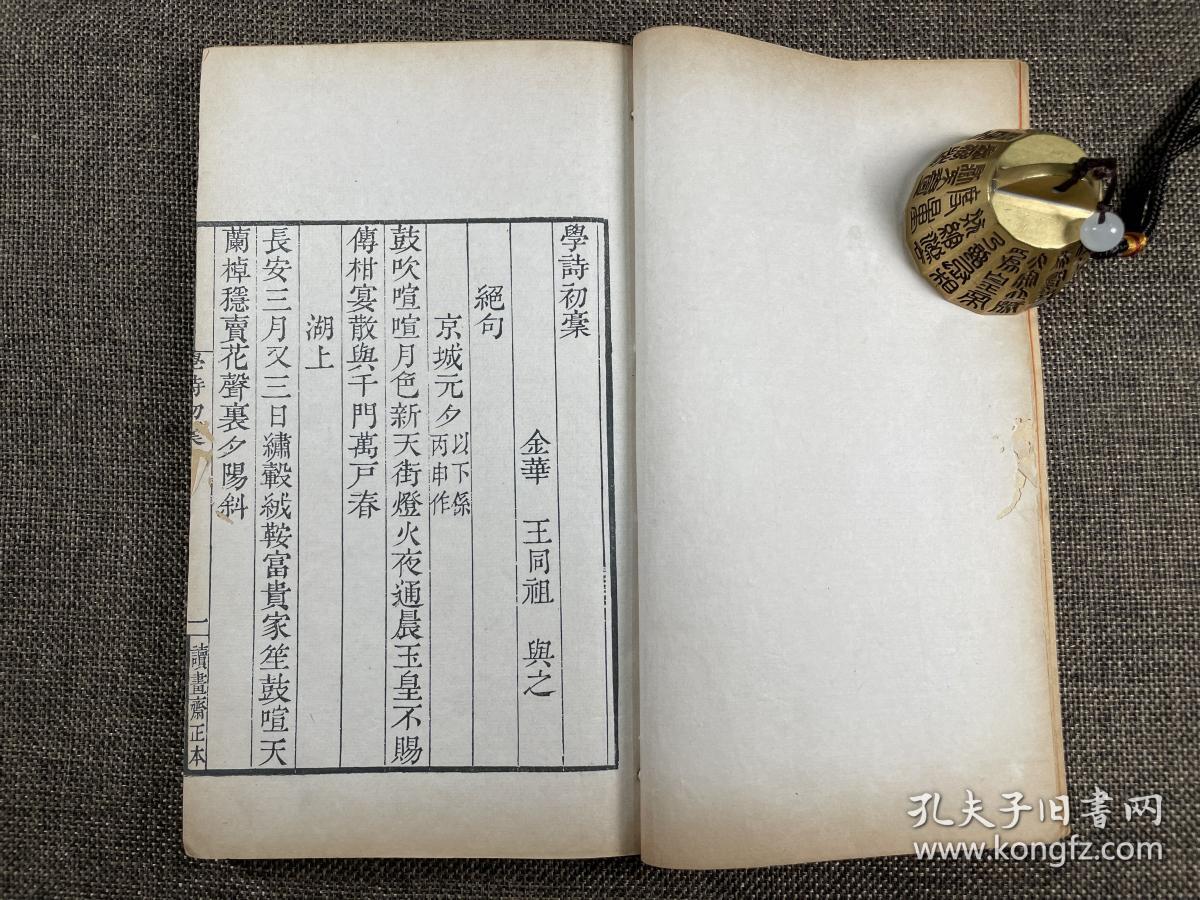 學詩初稾
金華 王同祖 與之
絕句
京城元夕以下係丙申作
鼓吹喧喧月色新天街燈火夜通晨玉皇不賜
傳柑宴散與千門萬戶春
湖上
長安三月又三日繡轂絨鞍富貴家笙鼓喧天
蘭棹穩賣花聲裏夕陽斜
學詩初稾
一
讀畫齋正本
孔夫子旧书网
www.kongfz.com